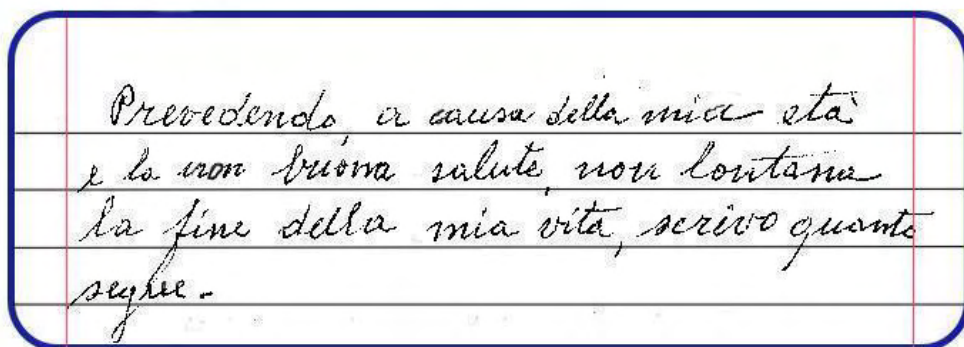 Prevedendo, a causa della mia età
e la non buona salute, non lontana
la fine della mia vita, scrivo quanto
segue.